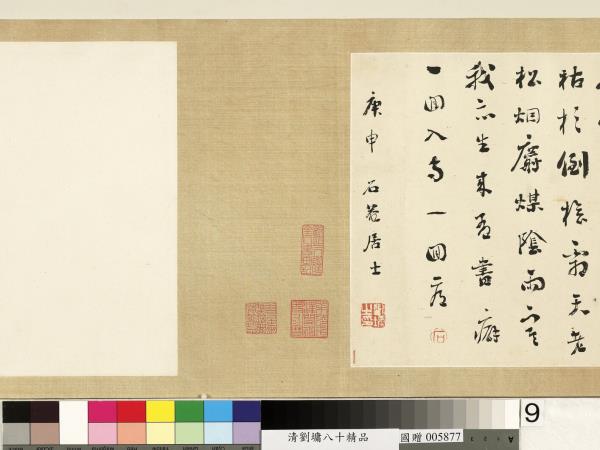 枯杉倒檜霜天老
松烟麝煤陰雨寒
我亦生來有書癖
一回入寺一回看
庚申 石菴居士
石
9
清劉墉八十精品
國贈 005877